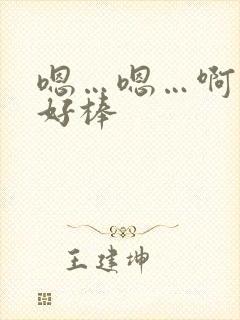 嗯…嗯…啊
好棒
王建坤